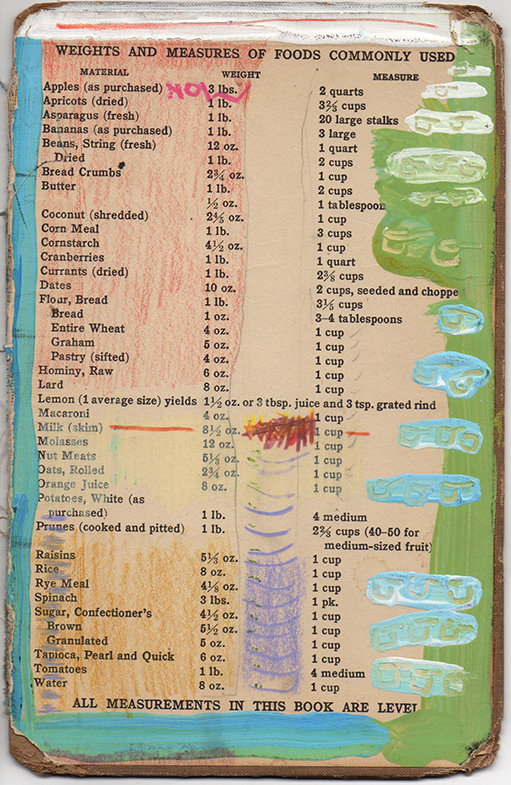 WEIGHTS AND MEASURES OF FOODS COMMONLY USED
MATERIAL WEIGHT MEASURE
Apples (as purchased) 3 lbs. 2 quarts
Apricots (dried) 1 lb. 3⅔ cups
Asparagus (fresh) 1 lb. 20 large stalks
Bananas (as purchased) 1 lb. 3 large
Beans, String (fresh) 12 oz. 1 quart
Dried 1 lb. 2 cups
Bread Crumbs 2¾ oz. 1 cup
Butter 1 lb. 2 cups
½ oz. 1 tablespoon
Coconut (shredded) 2⅘ oz. 1 cup
Corn Meal 1 lb. 3 cups
Cornstarch 4½ oz. 1 cup
Cranberries 1 lb. 1 quart
Currants (dried) 1 lb. 2⅔ cups
Dates 10 oz. 2 cups, seeded and choppe
Flour, Bread 1 lb. 3⅕ cups
Bread 1 oz. 3–4 tablespoons
Entire Wheat 4 oz. 1 cup
Graham 5 oz. 1 cup
Pastry (sifted) 4 oz. 1 cup
Hominy, Raw 6 oz. 1 cup
Lard 8 oz. 1 cup
Lemon (1 average size) yields 1½ oz. or 3 tbsp. juice and 3 tsp. grated rind
Macaroni 4 oz. 1 cup
Milk (skim) 8½ oz. 1 cup
Molasses 12 oz. 1 cup
Nut Meats 5⅓ oz. 1 cup
Oats, Rolled 2¾ oz. 1 cup
Orange Juice 8 oz. 1 cup
Potatoes, White (as
purchased) 1 lb. 4 medium
Prunes (cooked and pitted) 1 lb. 2⅔ cups (40–50 for
medium-sized fruit)
Raisins 5⅓ oz. 1 cup
Rice 8 oz. 1 cup
Rye Meal 4⅛ oz. 1 cup
Spinach 3 lbs. 1 pk.
Sugar, Confectioner's 4½ oz. 1 cup
Brown 5½ oz. 1 cup
Granulated 5 oz. 1 cup
Tapioca, Pearl and Quick 6 oz. 1 cup
Tomatoes 1 lb. 4 medium
Water 8 oz. 1 cup
ALL MEASUREMENTS IN THIS BOOK ARE LEVEL